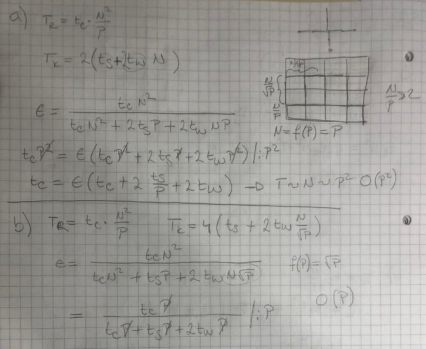 a) T_R = t_c · N²/P
T_K = 2(t_s + 2t_w N)
N/√P
N/P
N/P ≥ 2
N = f(P) = P
ε = t_c N² / (t_c N² + 2t_s P + 2t_w NP)
t_c P² = ε(t_c P² + 2t_s P + 2t_w P²) /: P²
t_c = ε(t_c + 2 t_s/P + 2t_w) → T ~ N ~ P² O(P²)
b) T_R = t_c · N²/P T_K = 4(t_s + 2t_w N/√P)
ε = t_c N² / (t_c N² + t_s P + 2t_w N√P) f(P) = √P
= t_c P / (t_c P + t_s P + 2t_w P) /: P O(P)